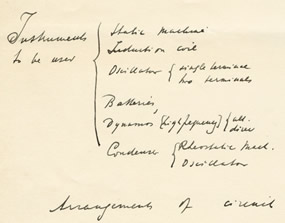 Instruments to be used
Static machine
Induction coil
Oscillator { single terminal
two terminals
Batteries,
Dynamos [high frequency]
Condenser { Rheostatic Mach.
Oscillator
Arrangements of circuit